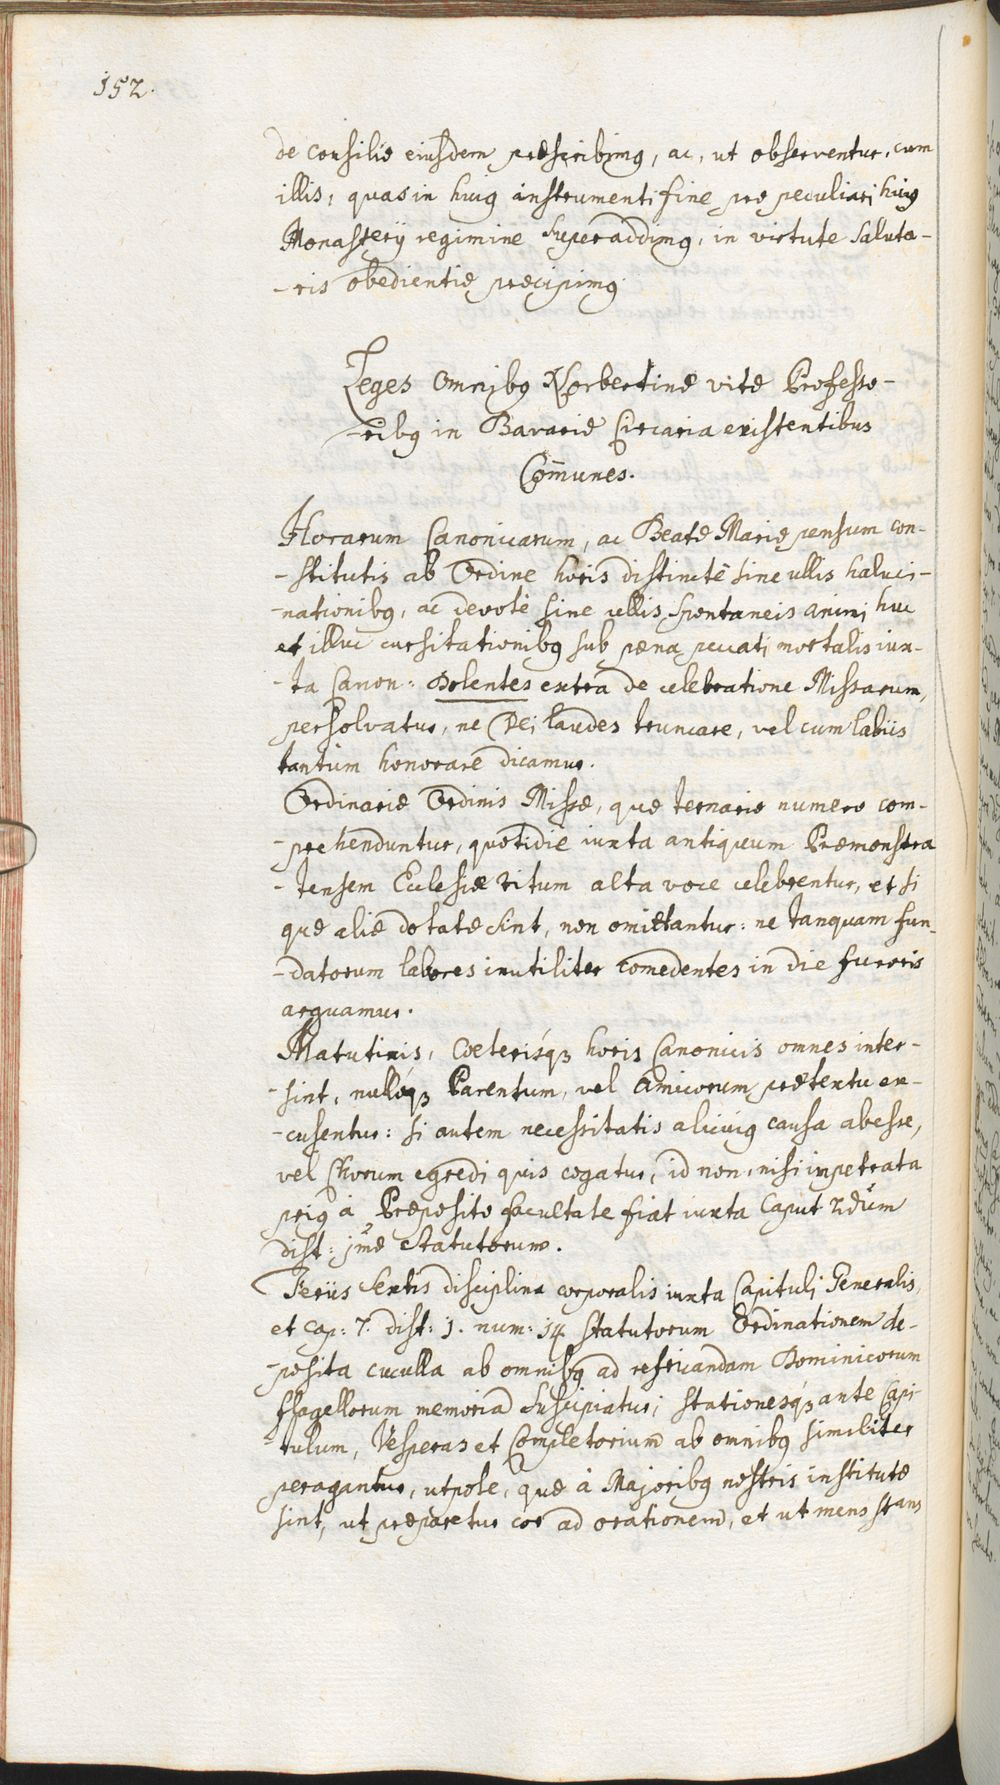 152.
de consilio eiusdem præscribimꝰ, ac, ut observentur, cum
illis, quas in huiꝰ instrumenti fine pro peculiari huiꝰ
Monasterij regimine superaddimꝰ, in virtute saluta-
-ris obedientiæ præcipimꝰ.
Leges omnibꝰ Norbertinæ vitæ Professo-
-ribꝰ in Bavariæ Circaria existentibus
Com̄unes.
Horarum Canonicarum, ac Beatæ Mariæ pensum con-
-stitutis ab Ordine horis distinctè sine ullis haluci-
-nationibꝰ, ac devotè sine ullis spontaneis animi huc
et illuc cursitationibꝰ sub pæna peccati mortalis iux-
-ta Canon: Dolentes extra de celebratione Missarum,
persolvatur, ne Dei laudes truncare, vel cum labiis
tantùm honorare dicamur.
Ordinariæ Ordinis Missæ, quæ ternario numero com-
-prehenduntur, quotidie iuxta antiquum Præmonstra
-tensem Ecclesiæ ritum alta voce celebrentur, et si
quæ aliæ dotatæ sint, non omittantur: ne tanquam fun-
-datorum labores inutiliter comedentes in die furoris
arguamur.
Matutinis, Cœterisq́ꝫ horis Canonicis omnes inter-
-sint, nulloq́ꝫ Parentum, vel Amicorum prætextu ex-
-cusentur: si autem necessitatis alicuiꝰ causa abesse,
vel Chorum egredi quis cogatur, id non, nisi impetrata
priꝰ à Præposito facultate fiat iuxta Caput 2dum
dist: 1mæ Statutorum.
Feriis sextis disciplina corporalis iuxta Capituli Generalis,
et cap: 7. dist: 1. num: 14 Statutorum Ordinationem de-
-posita cuculla ab omnibꝰ ad refricandam Dominicorum
flagellorum memoriā suscipiatur; stationesq́ꝫ ante Capi-
-tulum, Vesperas et Completorium ab omnibꝰ similiter
peragantur, utpote, quæ à Majoribꝰ nostris institutæ
sint, ut præparetur cor ad orationem, et ut mens stans